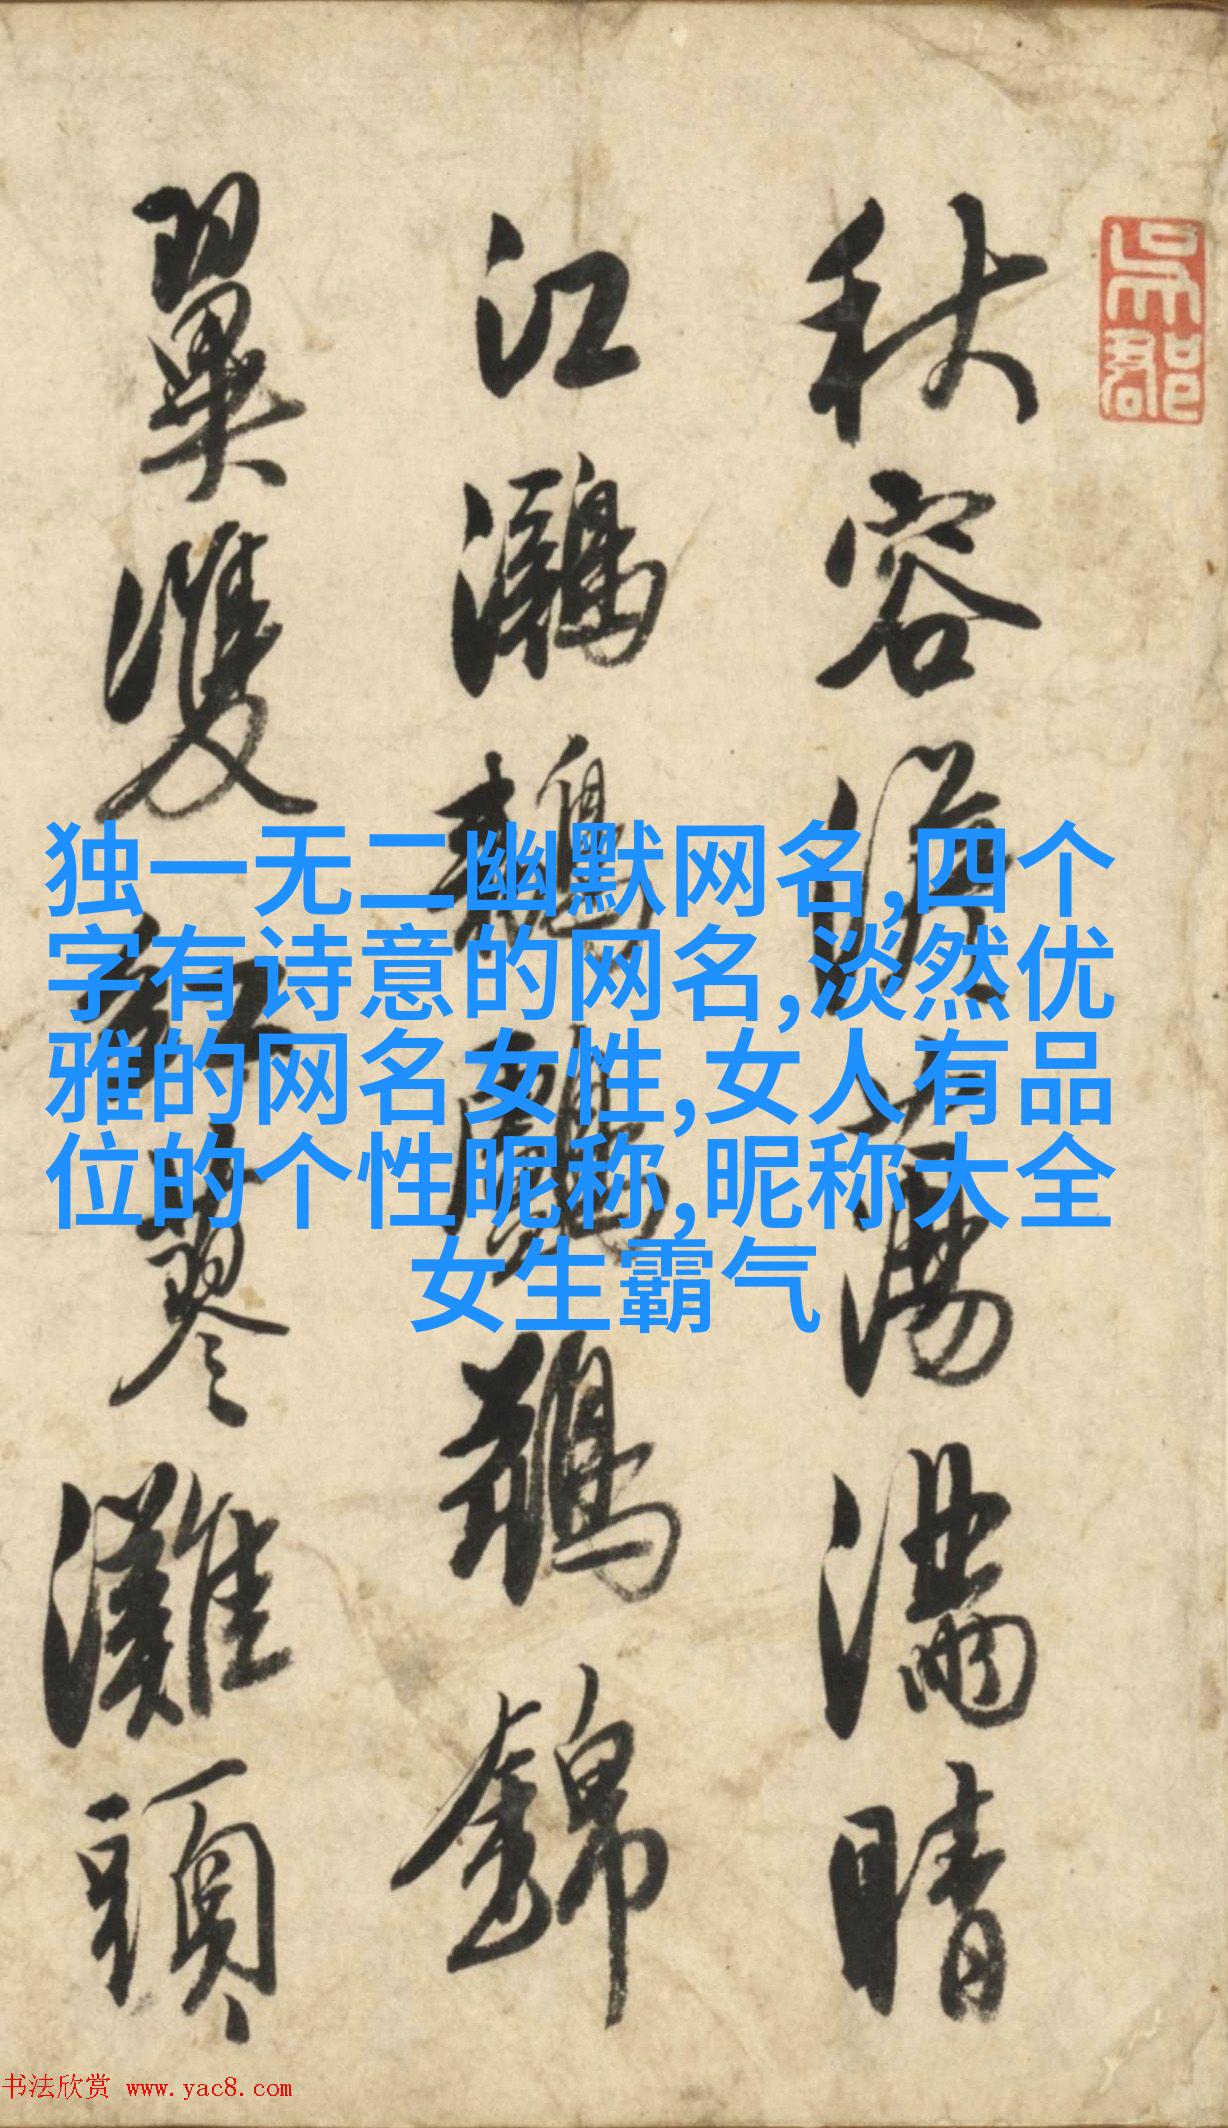 吳郡
秋容澹蕩滿晴
江鸂鶒鸕鶿錦
翼雙紅蓼灘頭
独一无二幽默网名,四个
字有诗意的网名,淡然优
雅的网名女性,女人有品
位的个性昵称,昵称大全
女生霸气
书法欣赏 www.yac8.com